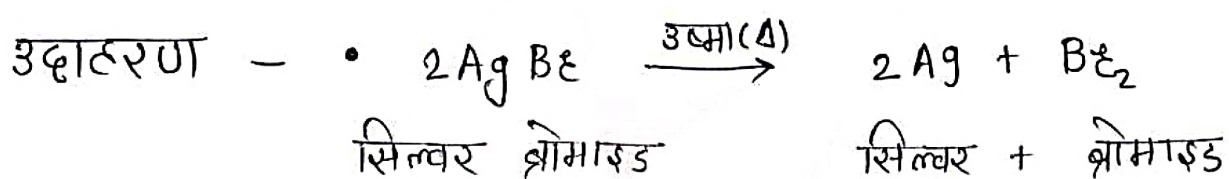 उदाहरण – • 2AgBr ऊष्मा(Δ)→ 2Ag + Br₂
सिल्वर ब्रोमाइड सिल्वर + ब्रोमाइड